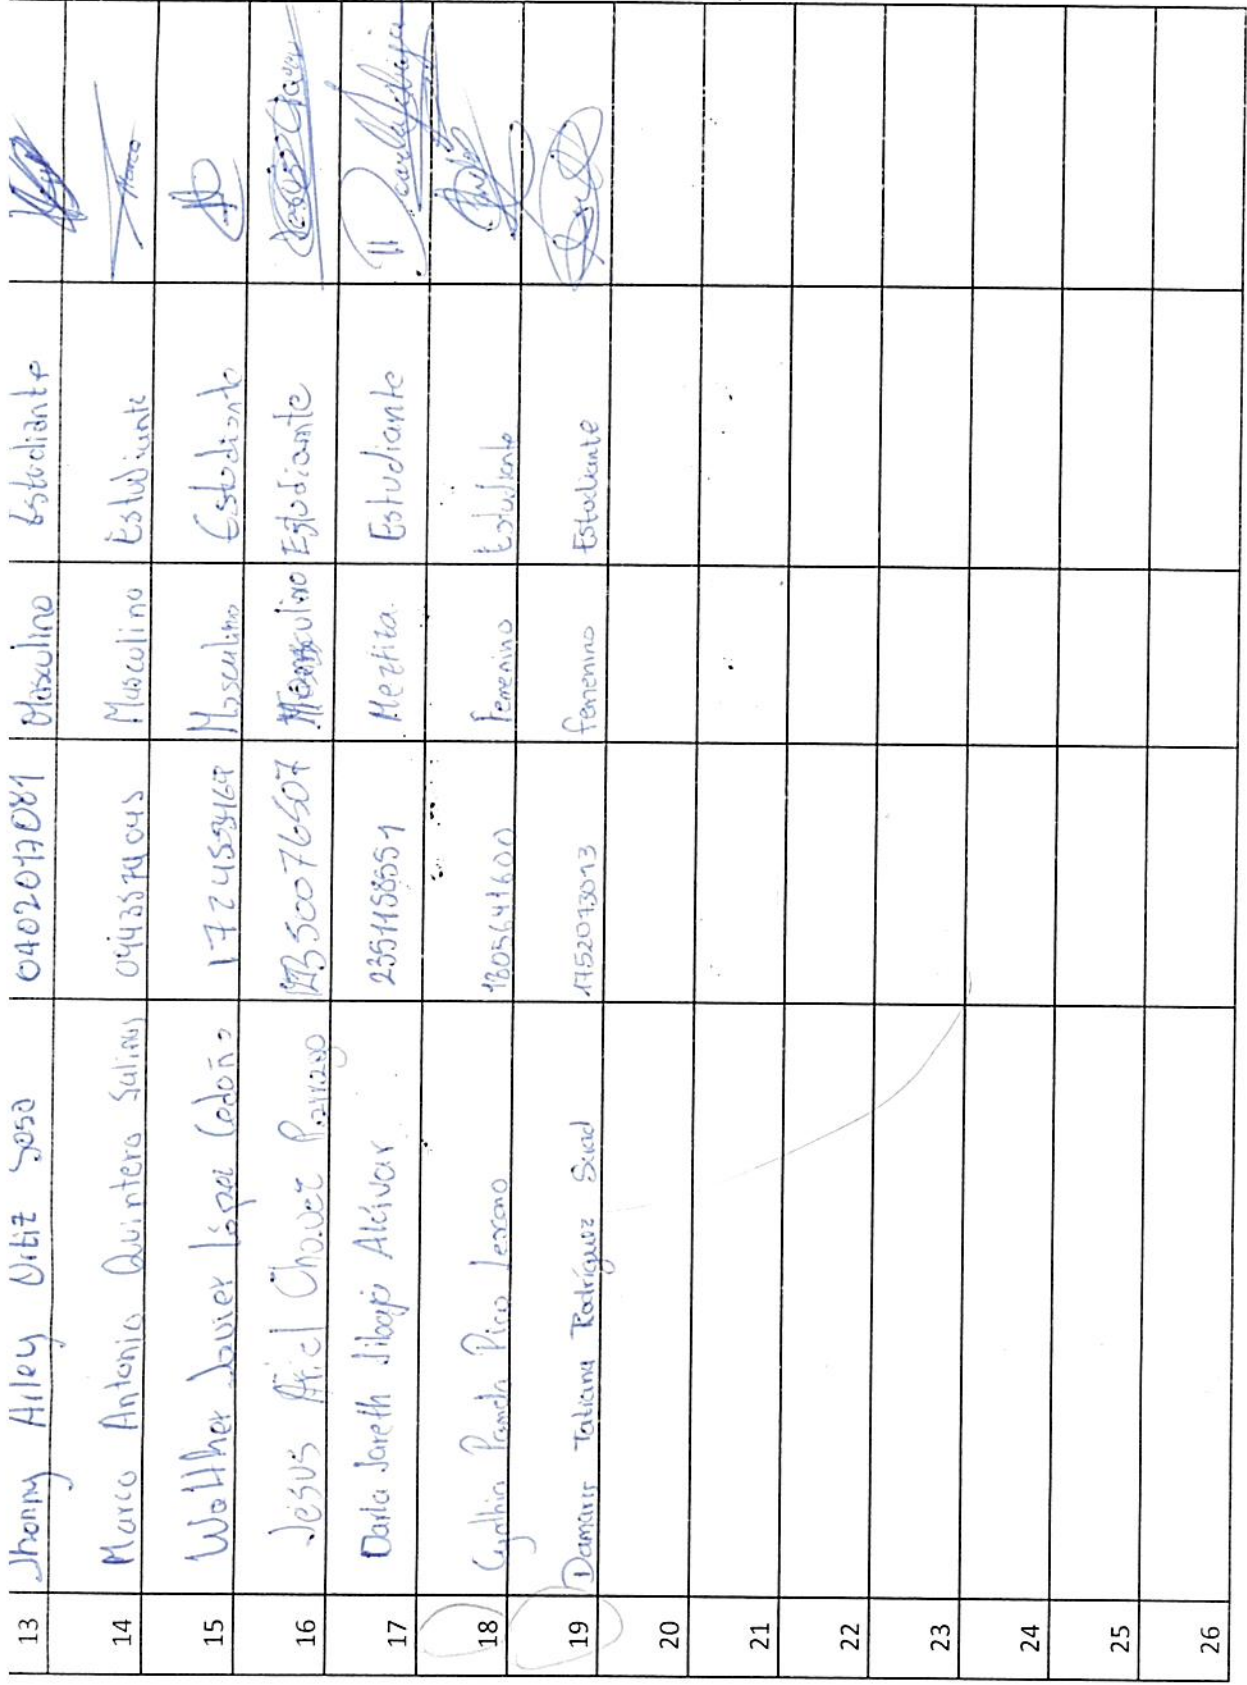 13 Jhonny Arley Ortiz Sosa 0402017081 Masculino Estudiante
14 Marco Antonio Quintero Salinas Masculino Estudiante Marco
15 Walther Javier López Cedoño Masculino Estudiante
16 Jesús Ariel Chavez 2350076507 Masculino Estudiante
17 Darla Jareth Jibaja Alcívar 2351158551 Meztiza Estudiante
18 Cynthia Pamela Pico 1805641600 Femenino Estudiante
19 Damaris Tatiana Rodríguez 1752073013 femenino Estudiante
20
21
22
23
24
25
26